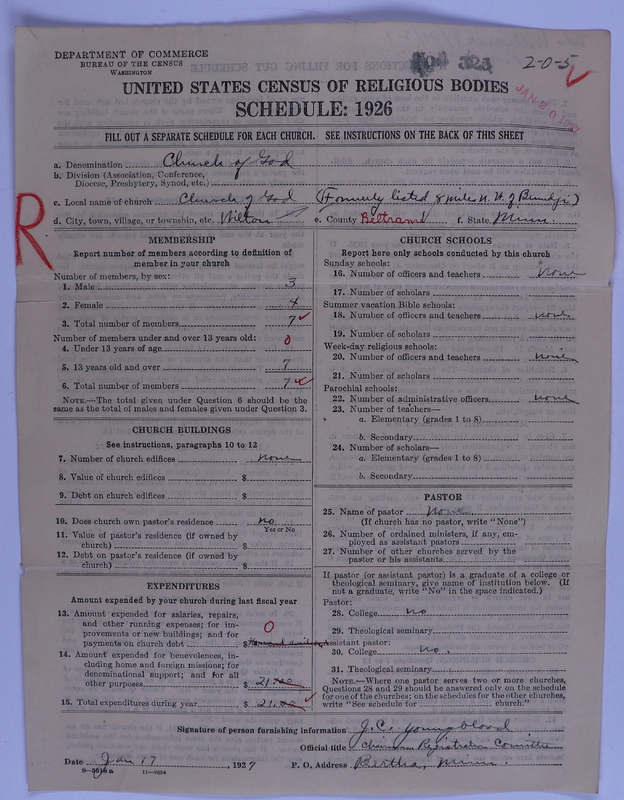 DEPARTMENT OF COMMERCE
BUREAU OF THE CENSUS
WASHINGTON
2-0-5
UNITED STATES CENSUS OF RELIGIOUS BODIES
SCHEDULE: 1926
FILL OUT A SEPARATE SCHEDULE FOR EACH CHURCH. SEE INSTRUCTIONS ON THE BACK OF THIS SHEET
a. Denomination Church of God
b. Division (Association, Conference,
Diocese, Presbytery, Synod, etc.)
c. Local name of church Church of God (Formerly listed 8 miles N. W. of Bemidji.)
d. City, town, village, or township, etc. Wilton e. County Beltrami f. State Minn.
R
MEMBERSHIP
Report number of members according to definition of
member in your church
Number of members, by sex:
1. Male 3
2. Female 4
3. Total number of members 7
Number of members under and over 13 years old:
4. Under 13 years of age 0
5. 13 years old and over 7
6. Total number of members 7
NOTE.—The total given under Question 6 should be
the same as the total of males and females given under Question 3.
CHURCH BUILDINGS
See instructions, paragraphs 10 to 12
7. Number of church edifices none
8. Value of church edifices $
9. Debt on church edifices $
10. Does church own pastor's residence no
Yes or No
11. Value of pastor's residence (if owned by
church) $
12. Debt on pastor's residence (if owned by
church) $
EXPENDITURES
Amount expended by your church during last fiscal year
13. Amount expended for salaries, repairs,
and other running expenses; for im-
provements or new buildings; and for
payments on church debt $ 0
14. Amount expended for benevolences, in-
cluding home and foreign missions; for
denominational support; and for all
other purposes $ 21.00
15. Total expenditures during year $ 21.00
CHURCH SCHOOLS
Report here only schools conducted by this church
Sunday schools:
16. Number of officers and teachers none
17. Number of scholars
Summer vacation Bible schools:
18. Number of officers and teachers none
19. Number of scholars
Week-day religious schools:
20. Number of officers and teachers none
21. Number of scholars
Parochial schools:
22. Number of administrative officers none
23. Number of teachers—
a. Elementary (grades 1 to 8)
b. Secondary
24. Number of scholars—
a. Elementary (grades 1 to 8)
b. Secondary
PASTOR
25. Name of pastor None
(If church has no pastor, write "None")
26. Number of ordained ministers, if any, em-
ployed as assistant pastors
27. Number of other churches served by the
pastor or his assistants
If pastor (or assistant pastor) is a graduate of a college or
theological seminary, give name of institution below. (If
not a graduate, write "No" in the space indicated.)
Pastor:
28. College no
29. Theological seminary
Assistant pastor:
30. College no.
31. Theological seminary
NOTE.—Where one pastor serves two or more churches,
Questions 28 and 29 should be answered only on the schedule
for one of the churches; on the schedules for the other churches,
write "See schedule for church."
Signature of person furnishing information J. C. Youngblood
Official title Chairman Registration Committee
Date Jan 17, 1927 P. O. Address Bertha, Minn.
11—9024